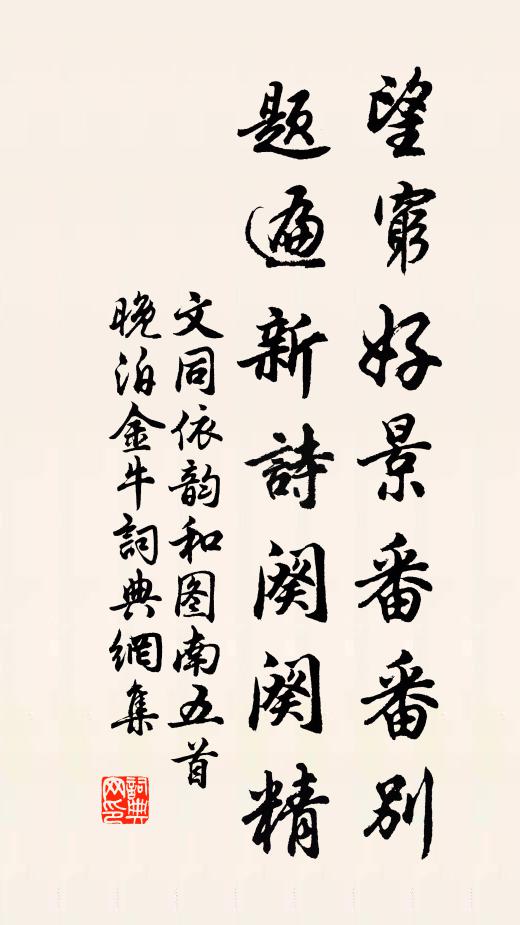 望窮好景番番別
題遍新詩闋闋精
文同依韵和图南五首
晚泊金牛詞典網集
詞典网印